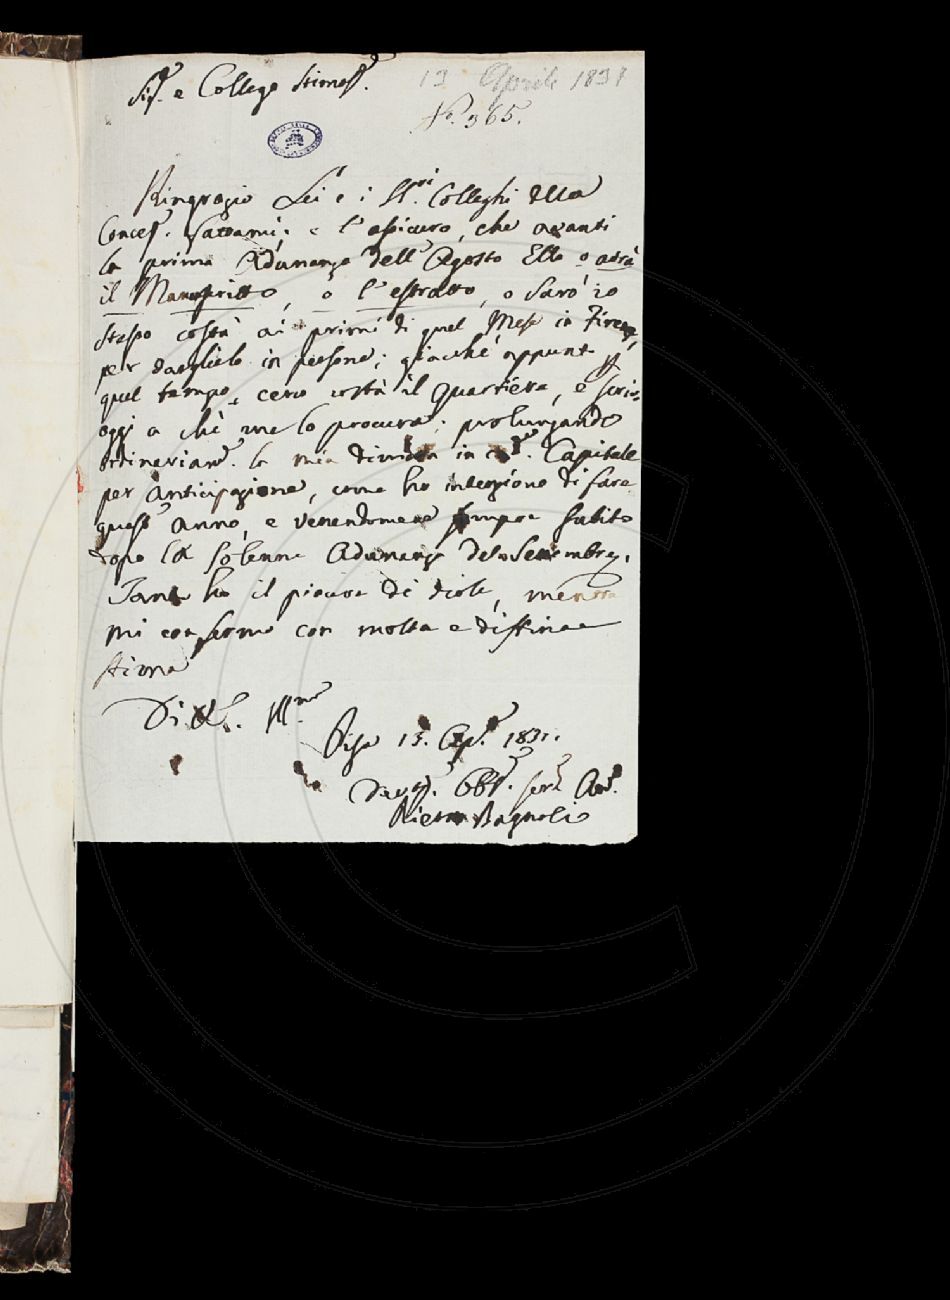 Sig. e Collega Stimoss.
13 Aprile 1831
N.° 365.
Ringrazio Lei e i SS.ri Colleghi della
Concess. fattami: e l'assicuro, che avanti
la prima Adunanza dell'Agosto Ella o avrà
il Manuscritto, o l'estratto, o sarò io
stesso costà ai primi di quel Mese in Firenze,
per darglielo in persona; giacchè appunto p
quel tempo, cerco costà il Quartiere, e scrivo
oggi a chi me lo procura; prolungando
ordinariam. la mia dimora in cod. Capitale
per anticipazione, come ho intenzione di fare
quest'anno, e venendomene sempre subito
dopo la solenne Adunanza del Settembre.
Tanto ho il piacere di dirle, mentre
mi confermo con molta e distinta
stima
Di VS. Ill.ma
Pisa 13. Ap. 1831.
Devot. Obb. ser. Am.
Pietro Bagnoli